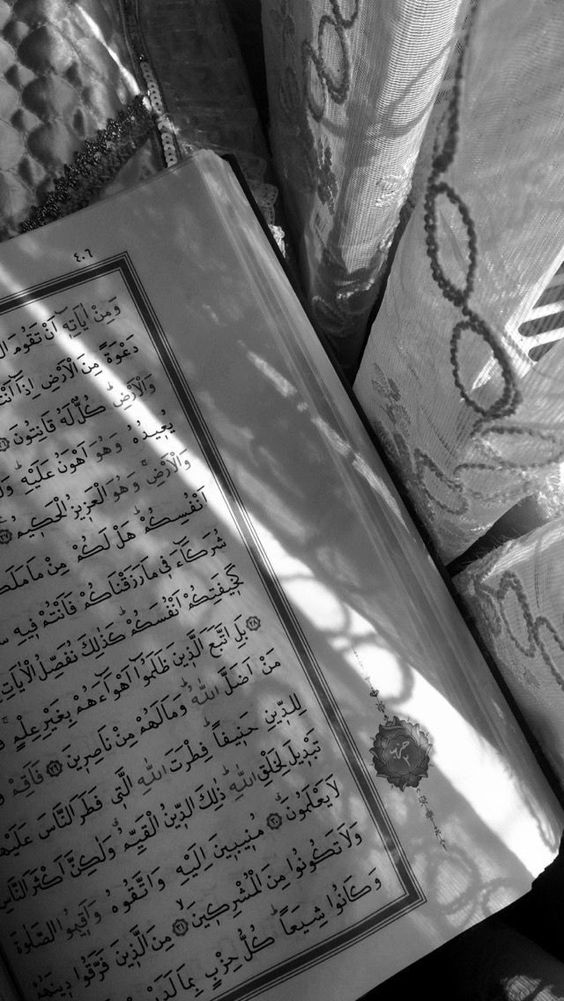 ٤٠٦
وَمِنْ اٰيَاتِهٖٓ اَنْ تَقُومَ
دَعْوَةً مِنَ الْاَرْضِ اِذَٓا اَنْتُمْ
وَالْاَرْضِۜ كُلٌّ لَهُ قَانِتُونَ
يُعِيدُهُ وَهُوَ اَهْوَنُ عَلَيْهِۜ
وَالْاَرْضِۚ وَهُوَ الْعَزٖيزُ الْحَكٖيمُ
اَنْفُسِكُمْۜ هَلْ لَكُمْ مِنْ مَا
شُرَكَٓاءَ فٖي مَا رَزَقْنَاكُمْ فَاَنْتُمْ فٖيهِ
كَخٖيفَتِكُمْ اَنْفُسَكُمْۜ كَذٰلِكَ نُفَصِّلُ الْاٰيَاتِ
٢٨ بَلِ اتَّبَعَ الَّذٖينَ ظَلَمُٓوا اَهْوَٓاءَهُمْ بِغَيْرِ عِلْمٍۚ
مَنْ اَضَلَّ اللّٰهُۜ وَمَا لَهُمْ مِنْ نَاصِرٖينَ ٢٩ فَاَقِمْ
لِلدّٖينِ حَنٖيفًاۜ فِطْرَتَ اللّٰهِ الَّتٖي فَطَرَ النَّاسَ عَلَيْهَا
تَبْدٖيلَ لِخَلْقِ اللّٰهِۜ ذٰلِكَ الدّٖينُ الْقَيِّمُۗ وَلٰكِنَّ اَكْثَرَ النَّاسِ
لَا يَعْلَمُونَ ٣٠ مُنٖيبٖينَ اِلَيْهِ وَاتَّقُوهُ وَاَقٖيمُوا الصَّلٰوةَ
وَلَا تَكُونُوا مِنَ الْمُشْرِكٖينَ ٣١ مِنَ الَّذٖينَ فَرَّقُوا دٖينَهُمْ
وَكَانُوا شِيَعًاۜ كُلُّ حِزْبٍ بِمَا لَدَيْهِمْ